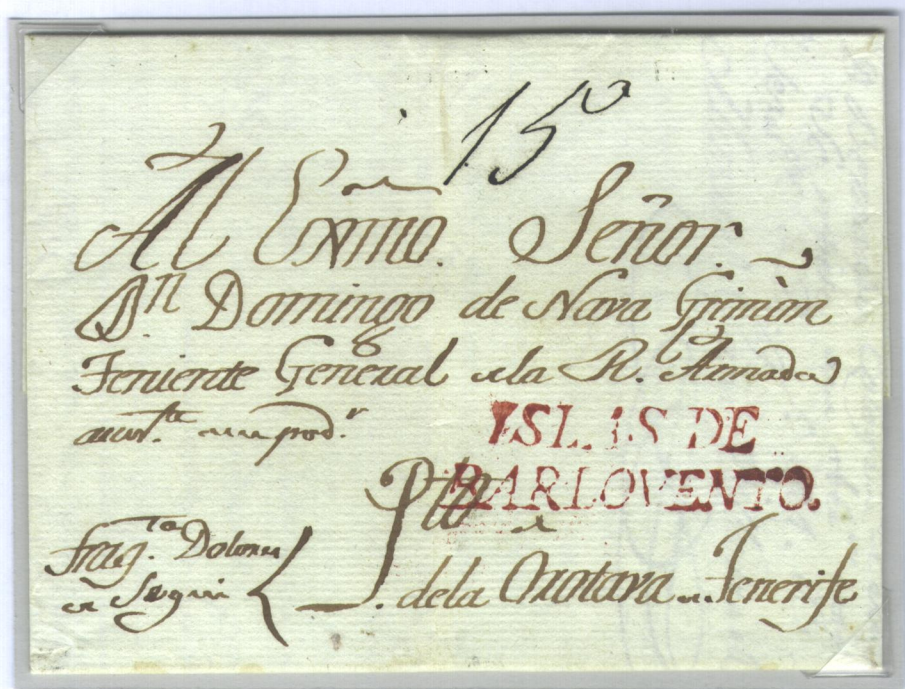 15º
Al Exmo. Señor.
Dn. Domingo de Nava Grimon
Teniente General de la R. Armada
ISLAS DE
BARLOVENTO.
Pto
frag.ta Dolores
de Seguí
de la Orotava en Tenerife